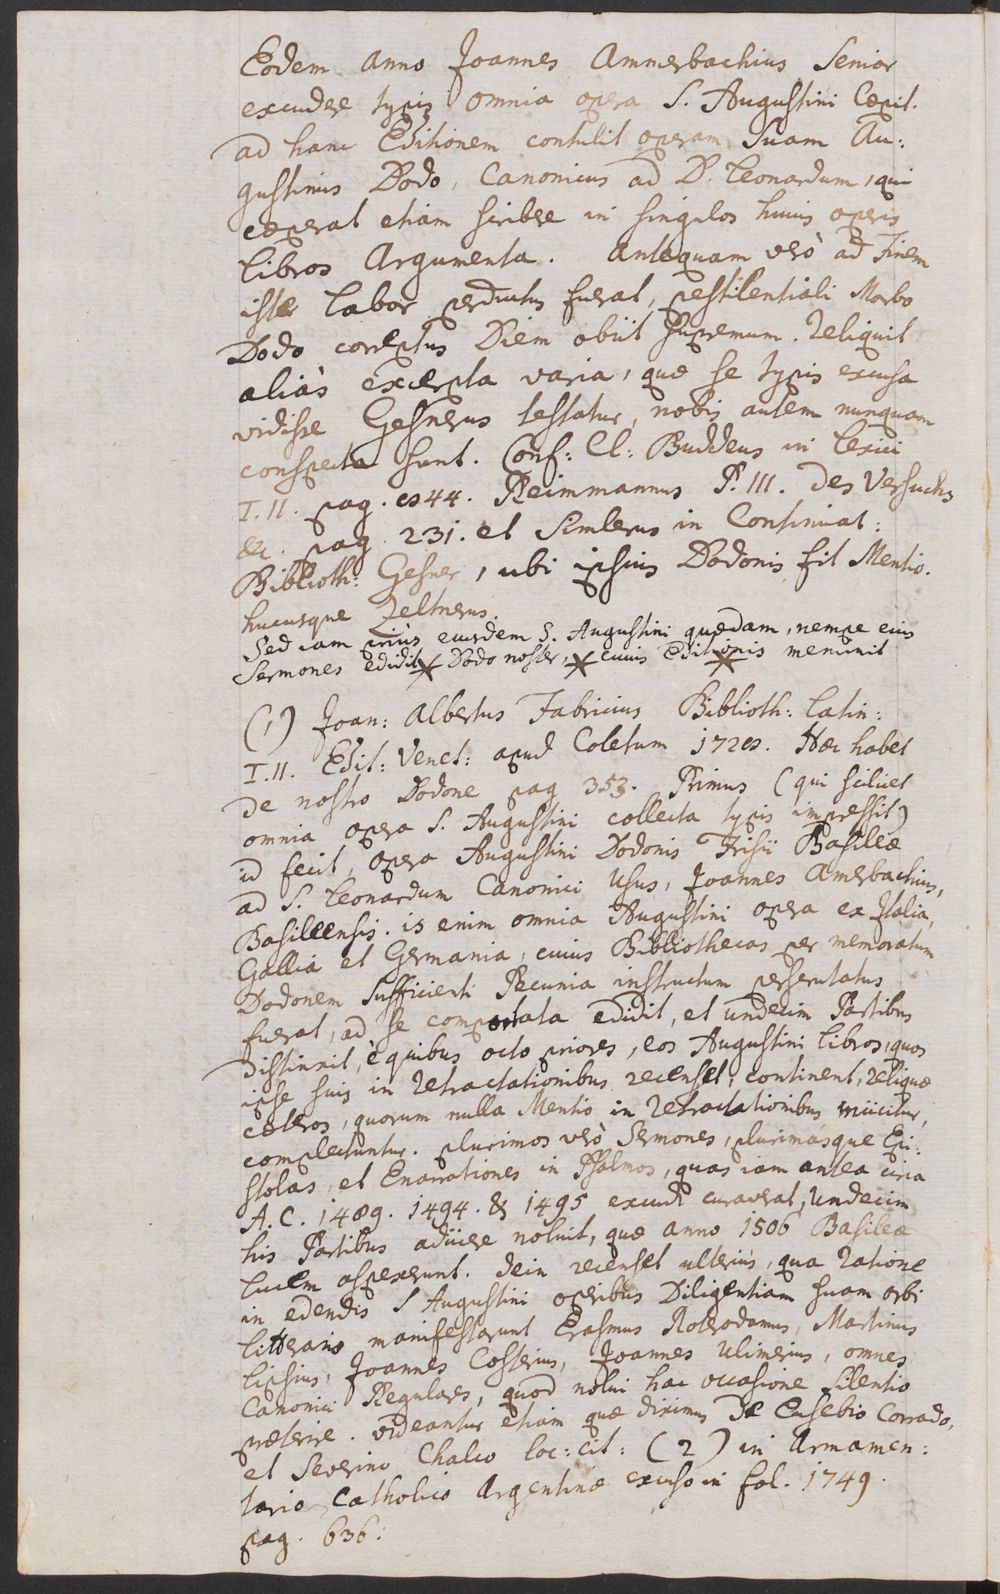 Eodem anno Joannes Ammerbachius Senior
excudere typis omnia opera S. Augustini Cœpit.
ad hanc Editionem contulit operam suam Au:
gustinus Dodo, Canonicus ad D. Leonardum, qui
cœperat etiam scribere in singulos huius operis
libros Argumenta. Antequam verò ad Finem
iste labor perductus fuerat, pestilentiali Morbo
Dodo correptus Diem obiit supremum. Reliquit
aliàs excerpta varia, quæ se typis excusa
vidisse Gesnerus testatur, nobis autem nunquam
conspecta sunt. Conf: Cl: Buddeus in Lexici
T. II. pag. 844. Reimmannus P. III. Des Versuchs
&c. pag. 231. et Simlerus in Continuat:
Biblioth: Gesner, ubi ipsius Dodonis fit Mentio.
hucusque Zeltnerus.
Sed iam priùs eiusdem S. Augustini quædam, nempe eius
Sermones edidit Dodo noster, cuius Editionis meminit
(1) Joan: Albertus Fabricius Biblioth: Latin:
T. II. Edit: Venet: apud Coletum 1728. Hæc habet
de nostro Dodone pag 353. Primus (qui scilicet
omnia opera S. Augustini collecta typis impressit)
id fecit, opera Augustini Dodonis Frisii Basileæ
ad S. Leonardum Canonici usus, Joannes Amerbachius,
Basileensis. is enim omnia Augustini opera ex Italia,
Gallia et Germania, cuius Bibliothecas per memoratum
Dodonem sufficienti Pecunia instructum perscrutatus
fuerat, ad se comportata edidit, et undecim Partibus
distinxit, è quibus octo priores, eos Augustini libros, quos
ipse suis in Retractationibus recenset, continent, reliquæ
cæteros, quorum nulla Mentio in Retractationibus iniicitur,
complectuntur. plurimos verò Sermones, plurimasque Epi:
stolas, et Enarrationes in Psalmos, quas iam antea circa
A. C. 1489. 1494. & 1495 excudi curaverat, Undecim
his Partibus adiicere noluit, quæ anno 1506 Basileæ
lucem aspexerunt. dein recenset ulterius, qua ratione
in edendis S Augustini operibus Diligentiam suam orbi
litterario manifestarunt Erasmus Roterodamus, Martinus
Lipsius, Joannes Costerius, Joannes Ulimerius, omnes
Canonici Regulares, quod nolui hac occasione silentio
præterire. videantur etiam quæ diximus De Eusebio Corrado,
et Severino Chalco loc: cit: (2) in Armamen:
tario Catholico Argentinæ excuso in fol. 1749.
pag. 636: